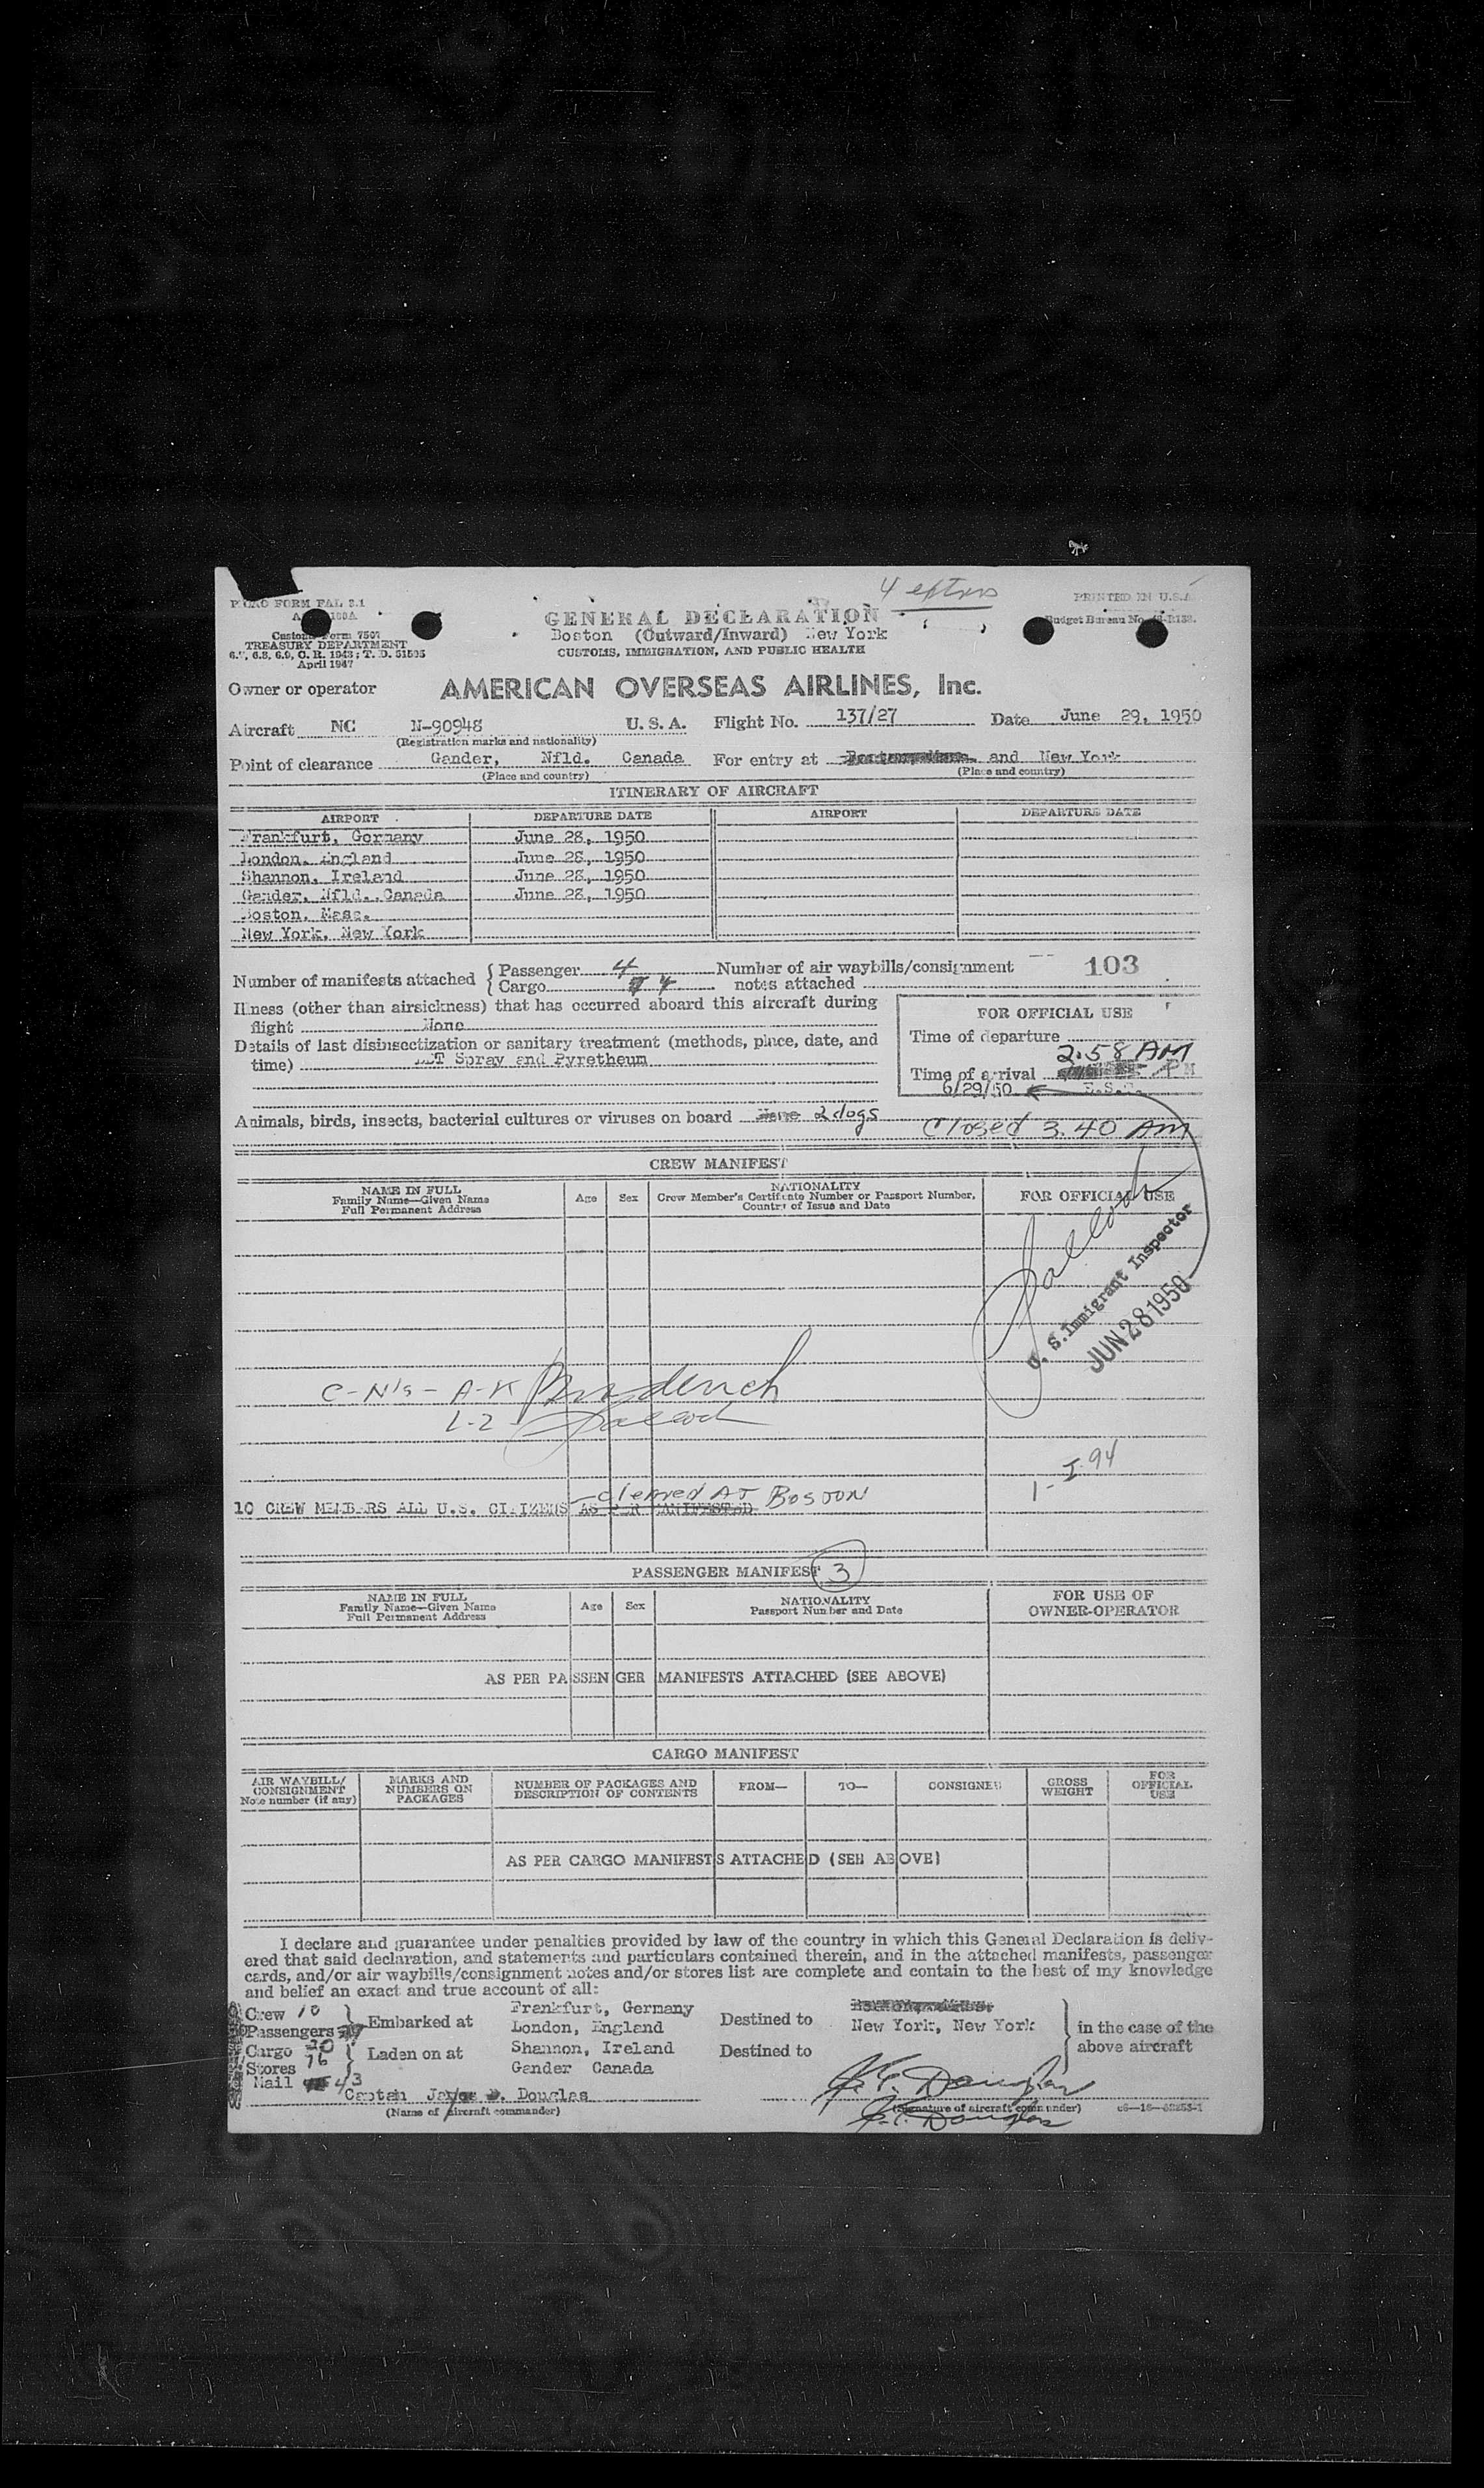 4 extras
FORM FAL 3.1
PRINTED IN U.S.A.
GENERAL DECLARATION
Budget Bureau No.
Customs Form 7507
Boston (Outward/Inward) New York
TREASURY DEPARTMENT
CUSTOMS, IMMIGRATION, AND PUBLIC HEALTH
6.7, 6.8, 6.9, C. R. 1943; T. D. 51595
April 1947
Owner or operator AMERICAN OVERSEAS AIRLINES, Inc.
Aircraft NC N-90948 U. S. A. Flight No. 137/27 Date June 29, 1950
(Registration marks and nationality)
Point of clearance Gander, Nfld. Canada For entry at and New York
(Place and country) (Place and country)
ITINERARY OF AIRCRAFT
AIRPORT DEPARTURE DATE AIRPORT DEPARTURE DATE
Frankfurt, Germany June 28, 1950
London, England June 28, 1950
Shannon, Ireland June 28, 1950
Gander, Nfld., Canada June 28, 1950
Boston, Mass.
New York, New York
Number of manifests attached { Passenger 4 Number of air waybills/consignment 103
Cargo 4 notes attached
Illness (other than airsickness) that has occurred aboard this aircraft during
flight None
FOR OFFICIAL USE
Details of last disinsectization or sanitary treatment (methods, place, date, and
time) Spray and Pyretheum
Time of departure
2.58 AM
Time of arrival PM
6/29/50 E.S.T.
Animals, birds, insects, bacterial cultures or viruses on board None 2 dogs
Closed 3.40 AM
CREW MANIFEST
NAME IN FULL
Family Name—Given Name
Full Permanent Address
Age Sex
NATIONALITY
Crew Member's Certificate Number or Passport Number,
Country of Issue and Date
FOR OFFICIAL USE
U. S. Immigrant Inspector
JUN 28 1950
C-N's - A-K
L-Z
1- I 94
cleared AT BOSTON
10 CREW MEMBERS ALL U.S. CITIZENS AS PER MANIFESTED
PASSENGER MANIFEST 3
NAME IN FULL
Family Name—Given Name
Full Permanent Address
Age Sex
NATIONALITY
Passport Number and Date
FOR USE OF
OWNER-OPERATOR
AS PER PASSENGER MANIFESTS ATTACHED (SEE ABOVE)
CARGO MANIFEST
AIR WAYBILL/
CONSIGNMENT
Note number (if any)
MARKS AND
NUMBERS ON
PACKAGES
NUMBER OF PACKAGES AND
DESCRIPTION OF CONTENTS
FROM— TO— CONSIGNEE
GROSS
WEIGHT
FOR
OFFICIAL
USE
AS PER CARGO MANIFESTS ATTACHED (SEE ABOVE)
I declare and guarantee under penalties provided by law of the country in which this General Declaration is deliv-
ered that said declaration, and statements and particulars contained therein, and in the attached manifests, passenger
cards, and/or air waybills/consignment notes and/or stores list are complete and contain to the best of my knowledge
and belief an exact and true account of all:
Crew 10
Passengers
Cargo
Stores 76
Mail 43
Embarked at
Laden on at
Frankfurt, Germany
London, England
Shannon, Ireland
Gander Canada
Destined to
New York, New York
Destined to
in the case of the
above aircraft
Captain Douglas
Douglas
(Name of aircraft commander)
(Signature of aircraft commander)
Douglas